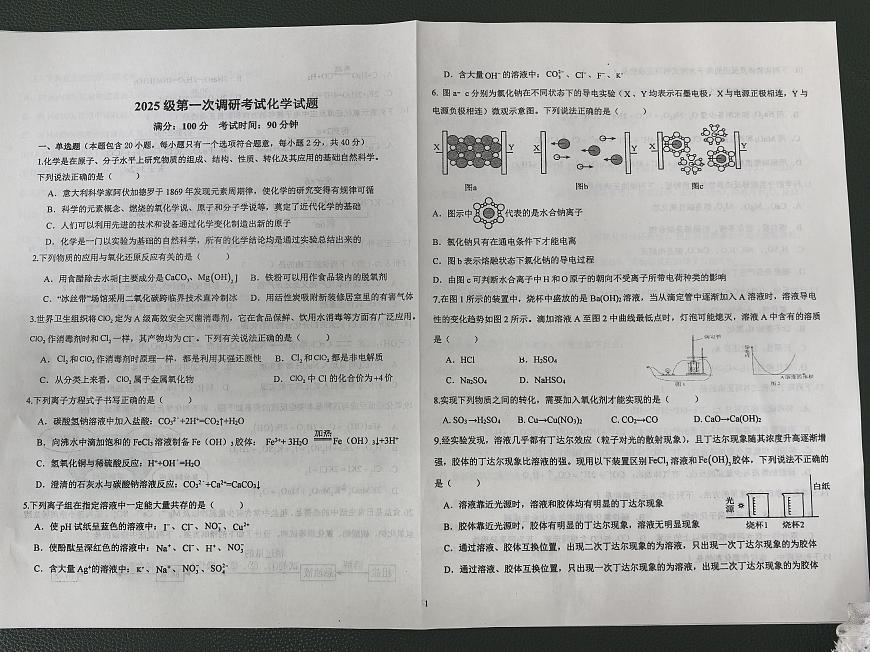 2025 级第一次调研考试化学试题
满分：100 分 考试时间：90 分钟
一、单选题（本题包含 20 小题，每小题只有一个选项符合题意，每小题 2 分，共 40 分）
1.化学是在原子、分子水平上研究物质的组成、结构、性质、转化及其应用的基础自然科学。
下列说法正确的是（ ）
A．意大利科学家阿伏加德罗于 1869 年发现元素周期律，使化学的研究变得有规律可循
B．科学的元素概念、燃烧的氧化学说、原子和分子学说等，奠定了近代化学的基础
C．人们可以利用先进的技术和设备通过化学变化制造出新的原子
D．化学是一门以实验为基础的自然科学，所有的化学结论均是通过实验总结出来的
2.下列物质的应用与氧化还原反应有关的是（ ）
A．用食醋除去水垢[主要成分是 CaCO₃、Mg(OH)₂] B．铁粉可以用作食品袋内的脱氧剂
C．“冰丝带”场馆采用二氧化碳跨临界技术直冷制冰 D．用活性炭吸附新装修居室里的有害气体
3.世界卫生组织将 ClO₂ 定为 A 级高效安全灭菌消毒剂，它在食品保鲜、饮用水消毒等方面有广泛应用。
ClO₂ 作消毒剂时和 Cl₂ 一样，其产物均为 Cl⁻。下列有关说法正确的是（ ）
A．Cl₂ 和 ClO₂ 作消毒剂时原理一样，都是利用其强还原性 B．Cl₂ 和 ClO₂ 都是非电解质
C．从分类上来看，ClO₂ 属于金属氧化物 D．ClO₂ 中 Cl 的化合价为+4 价
4.下列离子方程式子书写正确的是（ ）
A．碳酸氢钠溶液中加入盐酸：CO₃²⁻+2H⁺=CO₂↑+H₂O
B．向沸水中滴加饱和的 FeCl₃ 溶液制备 Fe（OH）₃ 胶体： Fe³⁺+ 3H₂O 加热 Fe（OH）₃↓+3H⁺
C．氢氧化铜与稀硫酸反应：H⁺+OH⁻=H₂O
D．澄清的石灰水与碳酸钠溶液反应：CO₃²⁻+Ca²⁺=CaCO₃↓
5.下列离子组在指定溶液中一定能大量共存的是（ ）
A．使 pH 试纸呈蓝色的溶液中：I⁻、Cl⁻、NO₃⁻、Cu²⁺
B．使酚酞呈深红色的溶液中：Na⁺、Cl⁻、H⁺、NO₃⁻
C．含大量 Ag⁺的溶液中：K⁺、Na⁺、NO₃⁻、SO₄²⁻
D．含大量 OH⁻ 的溶液中：CO₃²⁻、Cl⁻、F⁻、K⁺
6. 图 a～c 分别为氯化钠在不同状态下的导电实验（X、Y 均表示石墨电极，X 与电源正极相连，Y 与
电源负极相连）微观示意图。下列说法正确的是（ ）
X Y X Y X Y
图a 图b 图c
A．图示中 代表的是水合钠离子
B．氯化钠只有在通电条件下才能电离
C．图 b 表示熔融状态下氯化钠的导电过程
D．由图 c 可判断水合离子中 H 和 O 原子的朝向不受离子所带电荷种类的影响
7.在图 1 所示的装置中，烧杯中盛放的是 Ba(OH)₂ 溶液，当从滴定管中逐渐加入 A 溶液时，溶液导电
性的变化趋势如图 2 所示。滴加溶液 A 至图 2 中曲线最低点时，灯泡可能熄灭，溶液 A 中含有的溶质
是（ ）
A．HCl B．H₂SO₄
C．Na₂SO₄ D．NaHSO₄
图 1 图2
8.实现下列物质之间的转化，需要加入氧化剂才能实现的是（ ）
A. SO₃→H₂SO₄ B. Cu→Cu(NO₃)₂ C. CO₂→CO D. CaO→Ca(OH)₂
9.经实验发现，溶液几乎都有丁达尔效应（粒子对光的散射现象），且丁达尔现象随其浓度升高逐渐增
强，胶体的丁达尔现象比溶液的强。现用以下装置区别 FeCl₃ 溶液和 Fe(OH)₃ 胶体，下列说法不正确的
是（ ）
白纸
光源
烧杯1 烧杯2
A．溶液靠近光源时，溶液和胶体均有明显的丁达尔现象
B．胶体靠近光源时，胶体有明显的丁达尔现象，溶液无明显现象
C．通过溶液、胶体互换位置，出现二次丁达尔现象的为溶液，只出现一次丁达尔现象的为胶体
D．通过溶液、胶体互换位置，只出现一次丁达尔现象的为溶液，出现二次丁达尔现象的为胶体
1